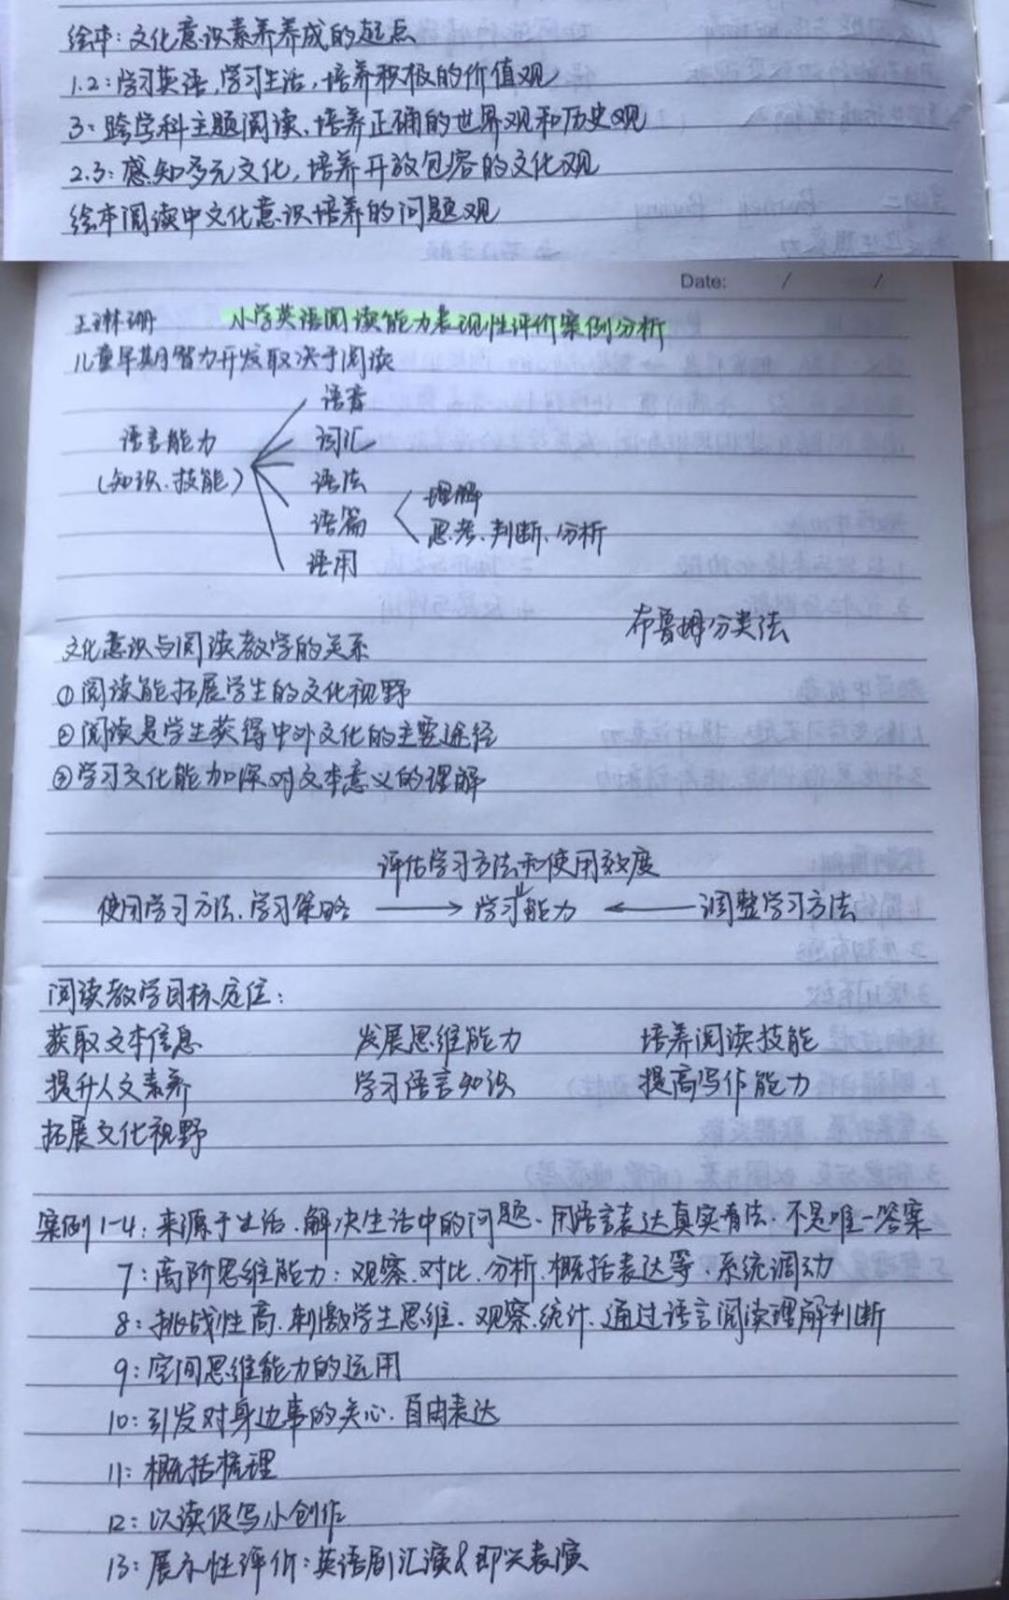 绘本:文化意识素养养成的起点
1.2:学习英语,学习生活,培养积极的价值观
3:跨学科主题阅读、培养正确的世界观和历史观
2.3:感知多元文化,培养开放包容的文化观
绘本阅读中文化意识培养的问题观
Date: / /
王琳珊 小学英语阅读能力表现性评价案例分析
儿童早期智力开发取决于阅读
语音
语言能力 词汇
(知识、技能) 语法
语篇 理解
思考、判断、分析
语用
布鲁姆分类法
文化意识与阅读教学的关系
①阅读能拓展学生的文化视野
②阅读是学生获得中外文化的主要途径
③学习文化能加深对文本意义的理解
评估学习方法和使用效度
使用学习方法、学习策略 → 学习能力 ← 调整学习方法
阅读教学目标定位:
获取文本信息 发展思维能力 培养阅读技能
提升人文素养 学习语言知识 提高写作能力
拓展文化视野
案例1-4:来源于生活、解决生活中的问题、用语言表达真实看法、不是唯一答案
7:高阶思维能力:观察、对比、分析、概括表达等、系统调动
8:挑战性高、刺激学生思维、观察、统计、通过语言阅读理解判断
9:空间思维能力的运用
10:引发对身边事的关心、自由表达
11:概括梳理
12:以读促写小创作
13:展示性评价:英语剧汇演&即兴表演